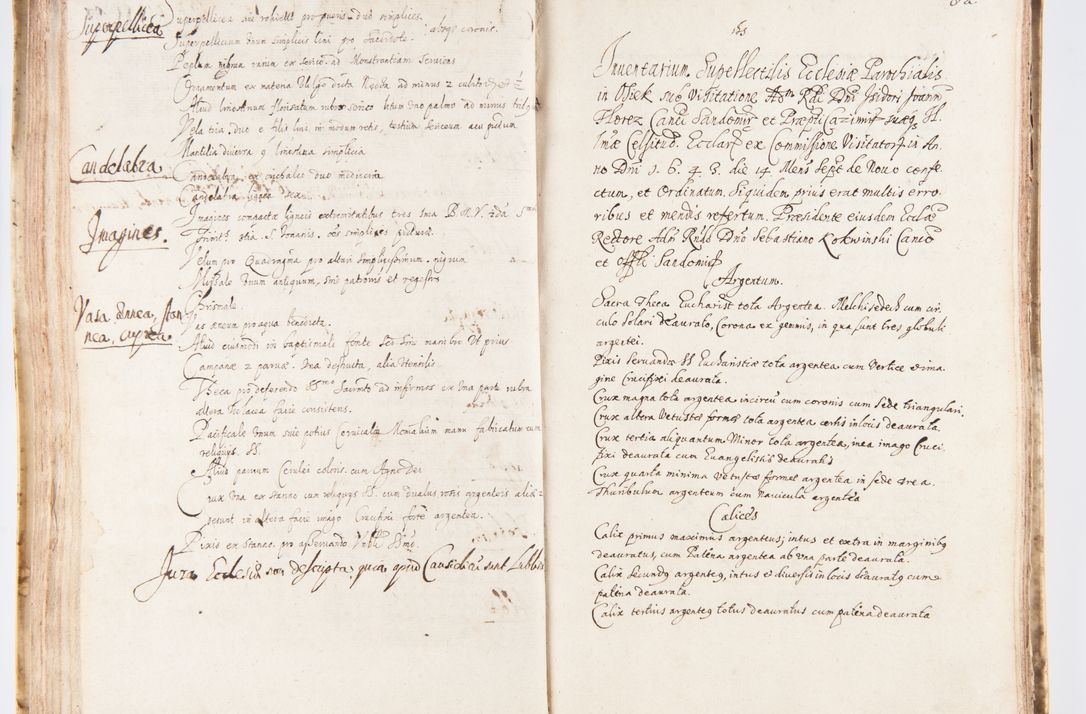 Superpellicea
Superpellicea sive rohielt pro pueris duo simplices.
Superpelliceum unum simplicis lini pro Sacerdote.
Peplum rubrum unum ex serico ad Monstrantiam Serviens
Ornamentum ex materia Vulgo dicta ad minus 2
Aliud lineatum ad minus
Vela tria, duo e filis lini in modum retis, tertium sericeum acu pictum
Mantilia diversa 9 lineatina simplicia
Candelabra
Candelabra ex orychalco duo mediocria
Candelabra lignea
Imagines.
Imagines compactæ ligneis extremitatibus tres Una B. M. V. 2da
3tia S. Joannis
Velum pro Quadragesima pro altari simplicissimum nigrum
Missale unum antiquum, sine patronis et registro
Vasa ænea, Stan
nea, cuprea
Chrismale
Vas æneum pro aqua benedicta.
Aliud eiusmodi in baptismali fonte
Campanæ 2 parvæ. Una destructa, alia Utensilis.
Theca pro deferendo SSmo Sacrmto ad infirmos ex Una parte rubra
altera Violacea facie consistens.
Pacificale Unum sive potius Cervicale Monialium manu fabricatum cum
reliquiis SS.
Aliud parvum Cerulei coloris cum Agno Dei
Crux Una ex stanno cum reliquiis SS. cum quatuor rosis argenteis aliæ
desunt in altera facie imago Crucifixi forte argentea.
Pixis ex stanno pro asservando SSmo
Jura Ecclesiæ non descripta, quia apud Causidicum sunt Lublin
183
Inventarium Supellectilis Ecclesiæ Parochialis
in Osiek sub Visitatione Adm Rdi Dni Isidori Joann
Florez Canci Sandomir et Præpti Cazimir suæq Il
lmæ Celsitud. Ecclar ex Commissione Visitatoris An
no Dni 1. 6. 4. 3. die 14 Mens Sept de Novo confe
ctum, et Ordinatum. Siquidem prius erat multis erro
ribus et mendis refertum. Præsidente eiusdem Ecclæ
Rectore Adm Rndo Dno Sebastiano Kokwinski Canco
et Offli Sandomir
Argentum.
Sacra Theca Eucharist tota Argentea. Melchisedech cum cir
culo Solari deaurato, Corona ex gemmis, in qua sunt tres globuli
argentei.
Pixis servandæ SS Eucharistiæ tota argentea cum Vertice et ima
gine Crucifixi deaurata.
Crux magna tota argentea in circu cum coronis cum sede triangulari.
Crux altera Vetustæ formæ tota argentea certis in locis deaurata.
Crux tertia aliquantum Minor tota argentea, in ea imago Cruci
fixi deaurata cum Euangelistis deauratis
Crux quarta minima vetustæ formæ argentea in sede ærea.
Thuribulum argenteum cum Navicula argentea
Calices
Calix primus maximus argenteus, intus et extra in marginibq
deauratus, cum Patena argentea ab una parte deaurata.
Calix Secundq argenteq, intus et diversis in locis deauratq cum
patena deaurata.
Calix tertius argenteq totus deauratus cum patena deaurata